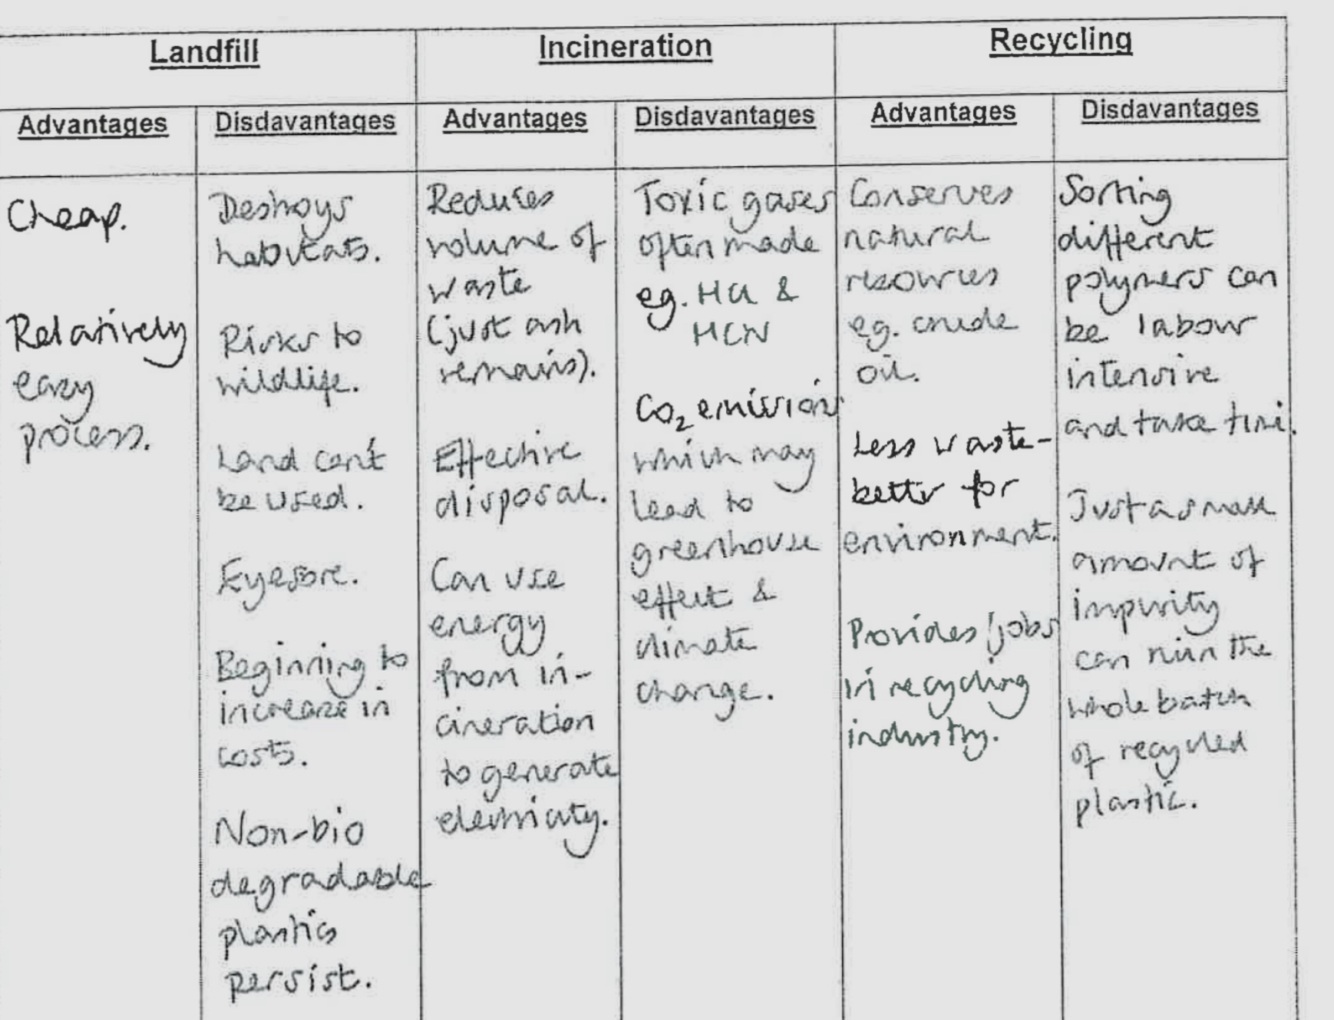 Landfill
Incineration
Recycling
Advantages
Disdavantages
Advantages
Disdavantages
Advantages
Disdavantages
Cheap.
Relatively
easy
process.
Destroys
habitats.
Risks to
wildlife.
Land can't
be used.
Eyesore.
Beginning to
increase in
costs.
Non-bio
degradable
plastics
persist.
Reduces
volume of
waste
(just ash
remains).
Effective
disposal.
Can use
energy
from in-
cineration
to generate
electricity.
Toxic gases
often made
eg. HCl &
HCN
CO₂ emissions
which may
lead to
greenhouse
effect &
climate
change.
Conserves
natural
resources
eg. crude
oil.
Less waste-
better for
environment.
Provides jobs
in recycling
industry.
Sorting
different
polymers can
be labour
intensive
and take time.
Just a small
amount of
impurity
can ruin the
whole batch
of recycled
plastic.